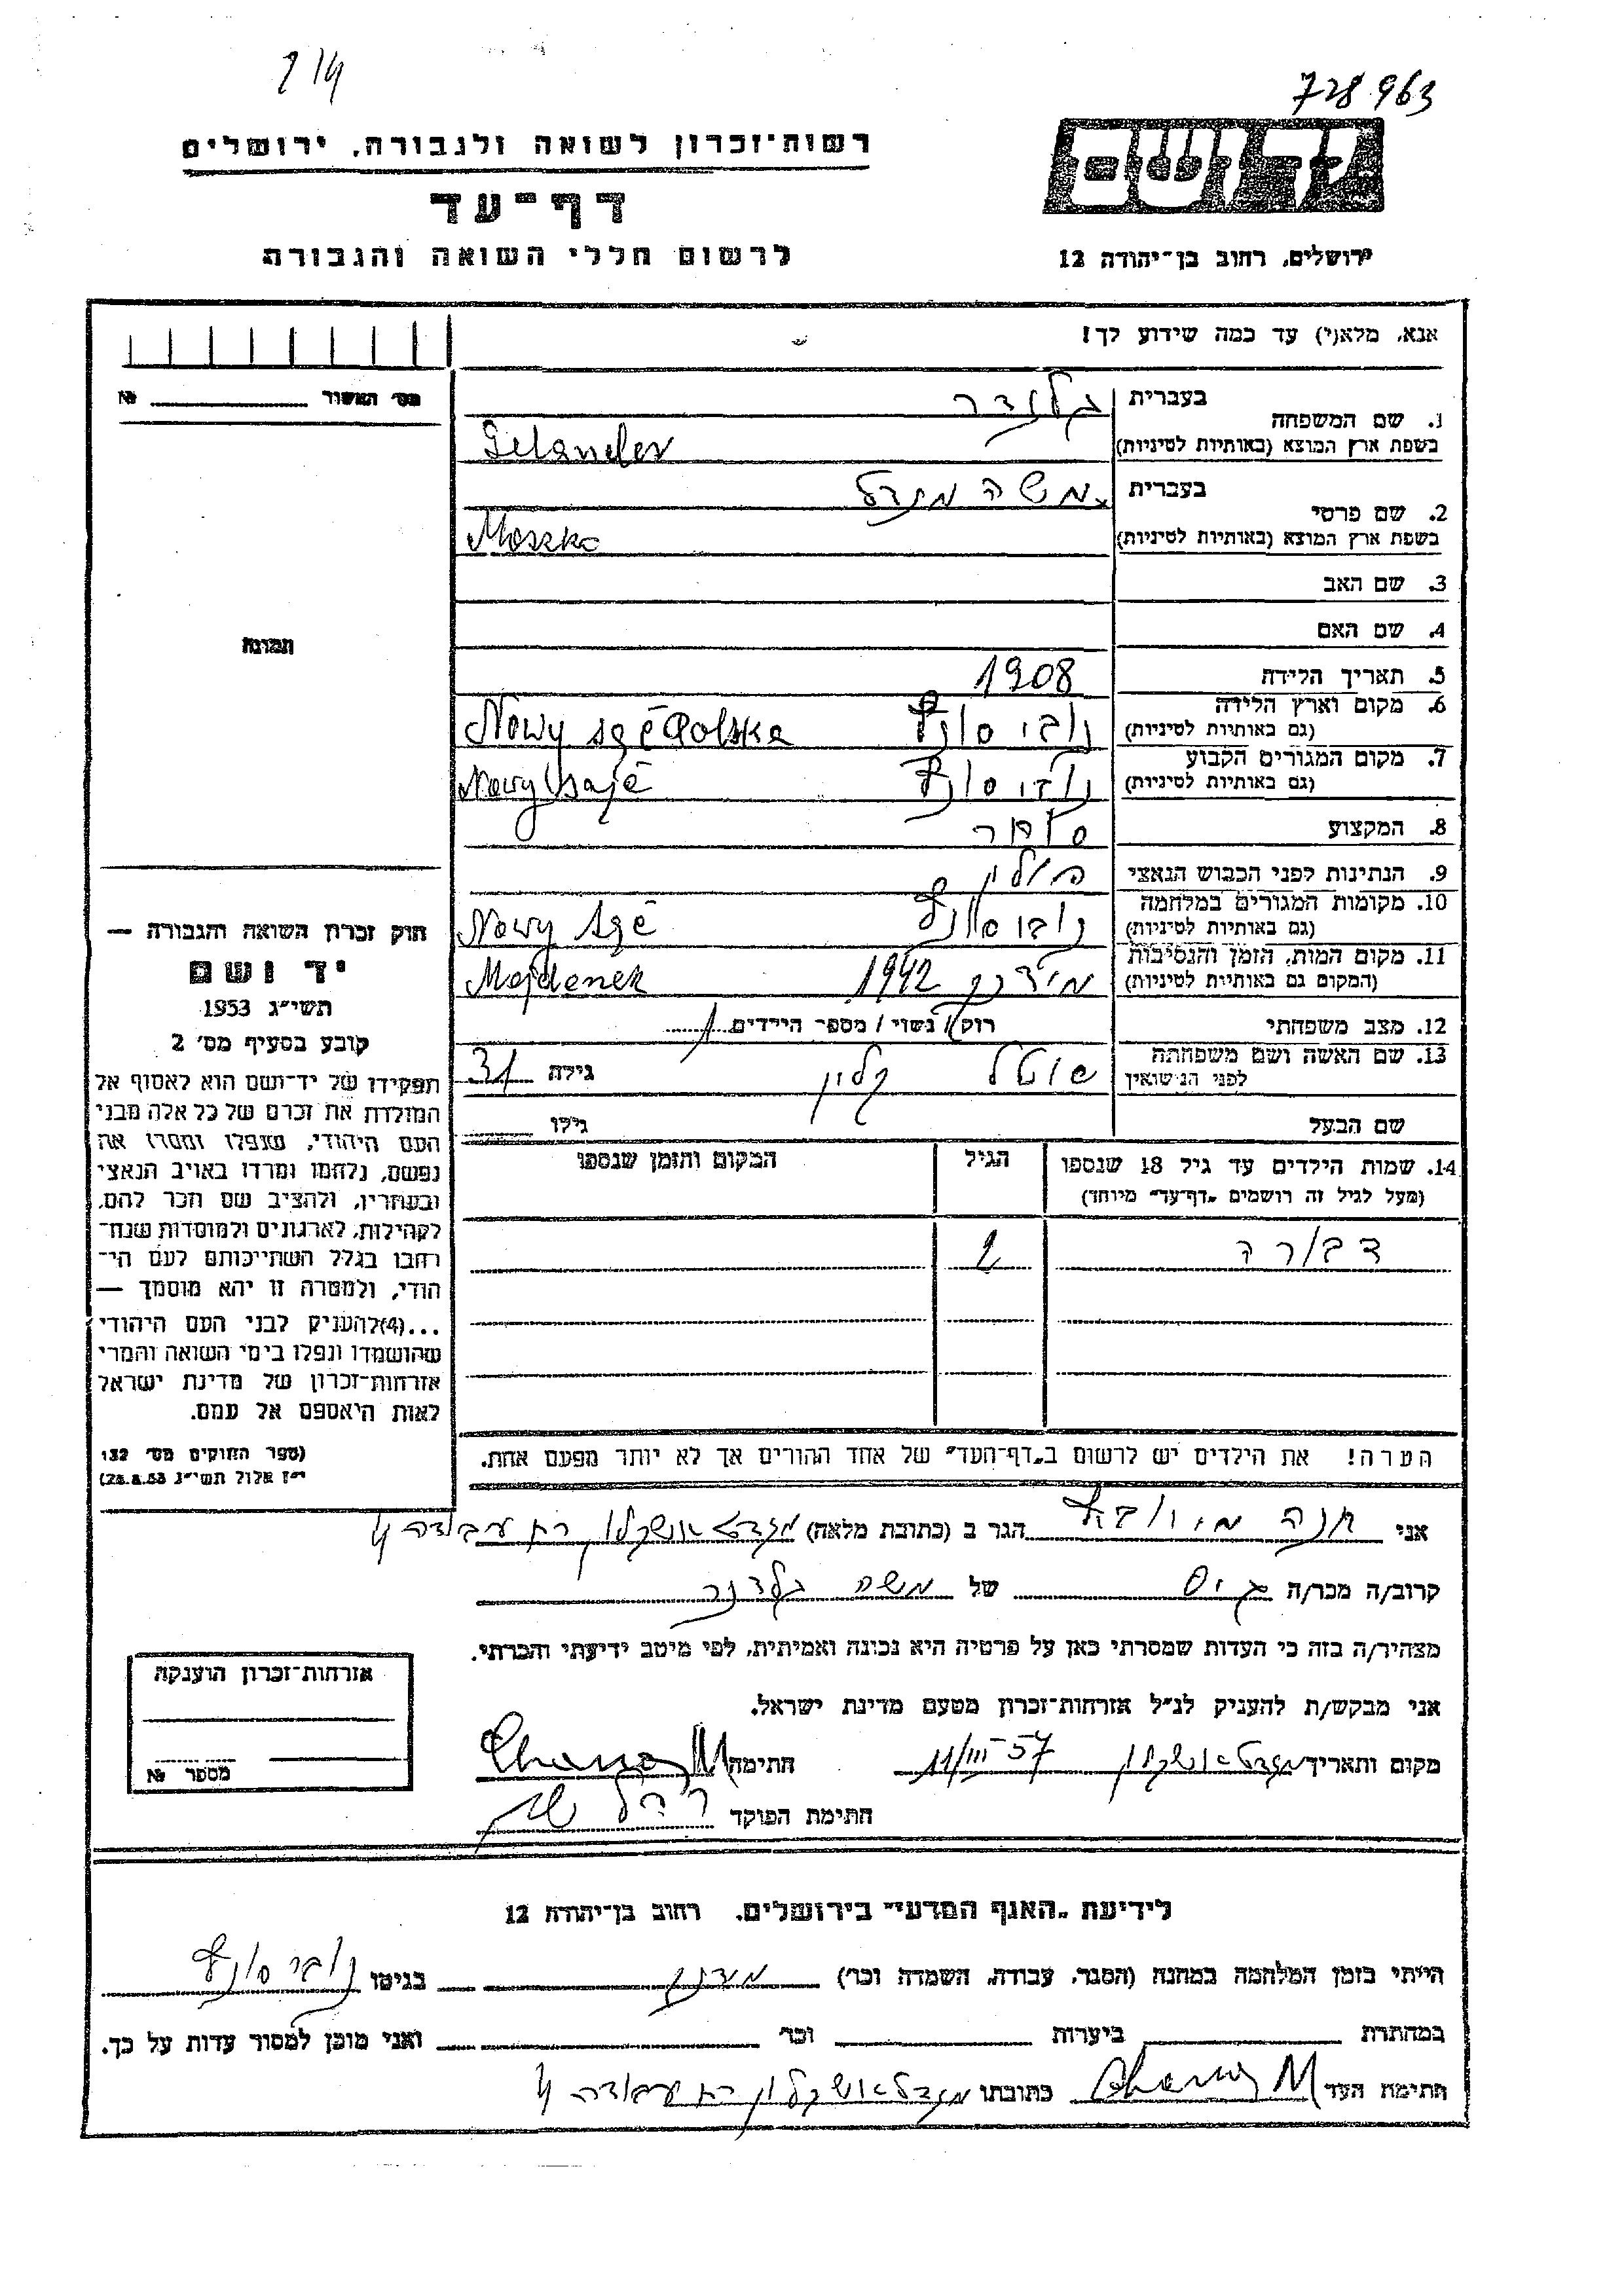 728963
רשות־זכרון לשואה ולגבורה, ירושלים
דף־עד
לרשום חללי השואה והגבורה
ירושלים, רחוב בן־יהודה 12
אנא, מלא(י) עד כמה שידוע לך!
מס׳ האשור №
1. שם המשפחה
בעברית גלנדר
בשפת ארץ המוצא (באותיות לטיניות) Gelander
2. שם פרטי
בעברית משה מנדל
בשפת ארץ המוצא (באותיות לטיניות) Moszko
3. שם האב
4. שם האם
5. תאריך הלידה 1908
6. מקום וארץ הלידה (גם באותיות לטיניות) נובי סונץ Polska
7. מקום המגורים הקבוע (גם באותיות לטיניות) נובי סונץ Nowy
8. המקצוע סוחר
9. הנתינות לפני הכבוש הנאצי פולין
10. מקומות המגורים במלחמה (גם באותיות לטיניות) נובי סונץ Nowy
11. מקום המות, הזמן והנסיבות (המקום גם באותיות לטיניות) מידנק 1942 Majdenek
12. מצב משפחתי רוק / נשוי / מספר הילדים 1
13. שם האשה ושם משפחתה לפני הנישואין קלין גילה 31
שם הבעל גילו
14. שמות הילדים עד גיל 18 שנספו (מעל לגיל זה רושמים „דף־עד״ מיוחד) הגיל המקום והזמן שנספו
דבורה 2
הערה! את הילדים יש לרשום ב„דף־העד״ של אחד ההורים אך לא יותר מפעם אחת.
תמונה
חוק זכרון השואה והגבורה —
יד ושם
תשי״ג 1953
קובע בסעיף מס׳ 2
תפקידו של יד־ושם הוא לאסוף אל
המולדת את זכרם של כל אלה מבני
העם היהודי, שנפלו ומסרו את
נפשם, נלחמו ומרדו באויב הנאצי
ובעוזריו, ולהציב שם וזכר להם,
לקהילות, לארגונים ולמוסדות שנח־
רבו בגלל השתייכותם לעם הי־
הודי, ולמטרה זו יהא מוסמך —
...(4)להעניק לבני העם היהודי
שהושמדו ונפלו בימי השואה והמרי
אזרחות־זכרון של מדינת ישראל
לאות היאספם אל עמם.
(ספר החוקים מס׳ 132
י״ז אלול תשי״ג 28.8.53)
אני חנה הגר ב (כתובת מלאה) מגדל אשקלון רח עבודה
קרוב/ה מכר/ה גיס של משה גלנדר
מצהיר/ה בזה כי העדות שמסרתי כאן על פרטיה היא נכונה ואמיתית, לפי מיטב ידיעתי והכרתי.
אני מבקש/ת להעניק לנ״ל אזרחות־זכרון מטעם מדינת ישראל.
מקום ותאריך מגדל אשקלון 11/III-57 חתימה Chana M
חתימת הפוקד
אזרחות־זכרון הוענקה
מספר №
לידיעת „האגף המדעי״ בירושלים, רחוב בן־יהודה 12
הייתי בזמן המלחמה במחנה (הסגר, עבודה, השמדה וכר׳) בגיטו נובי סונץ
במחתרת ביערות וכר׳ ואני מוכן למסור עדות על כך.
חתימת העד Chana M כתובתו מגדל אשקלון רח עבודה